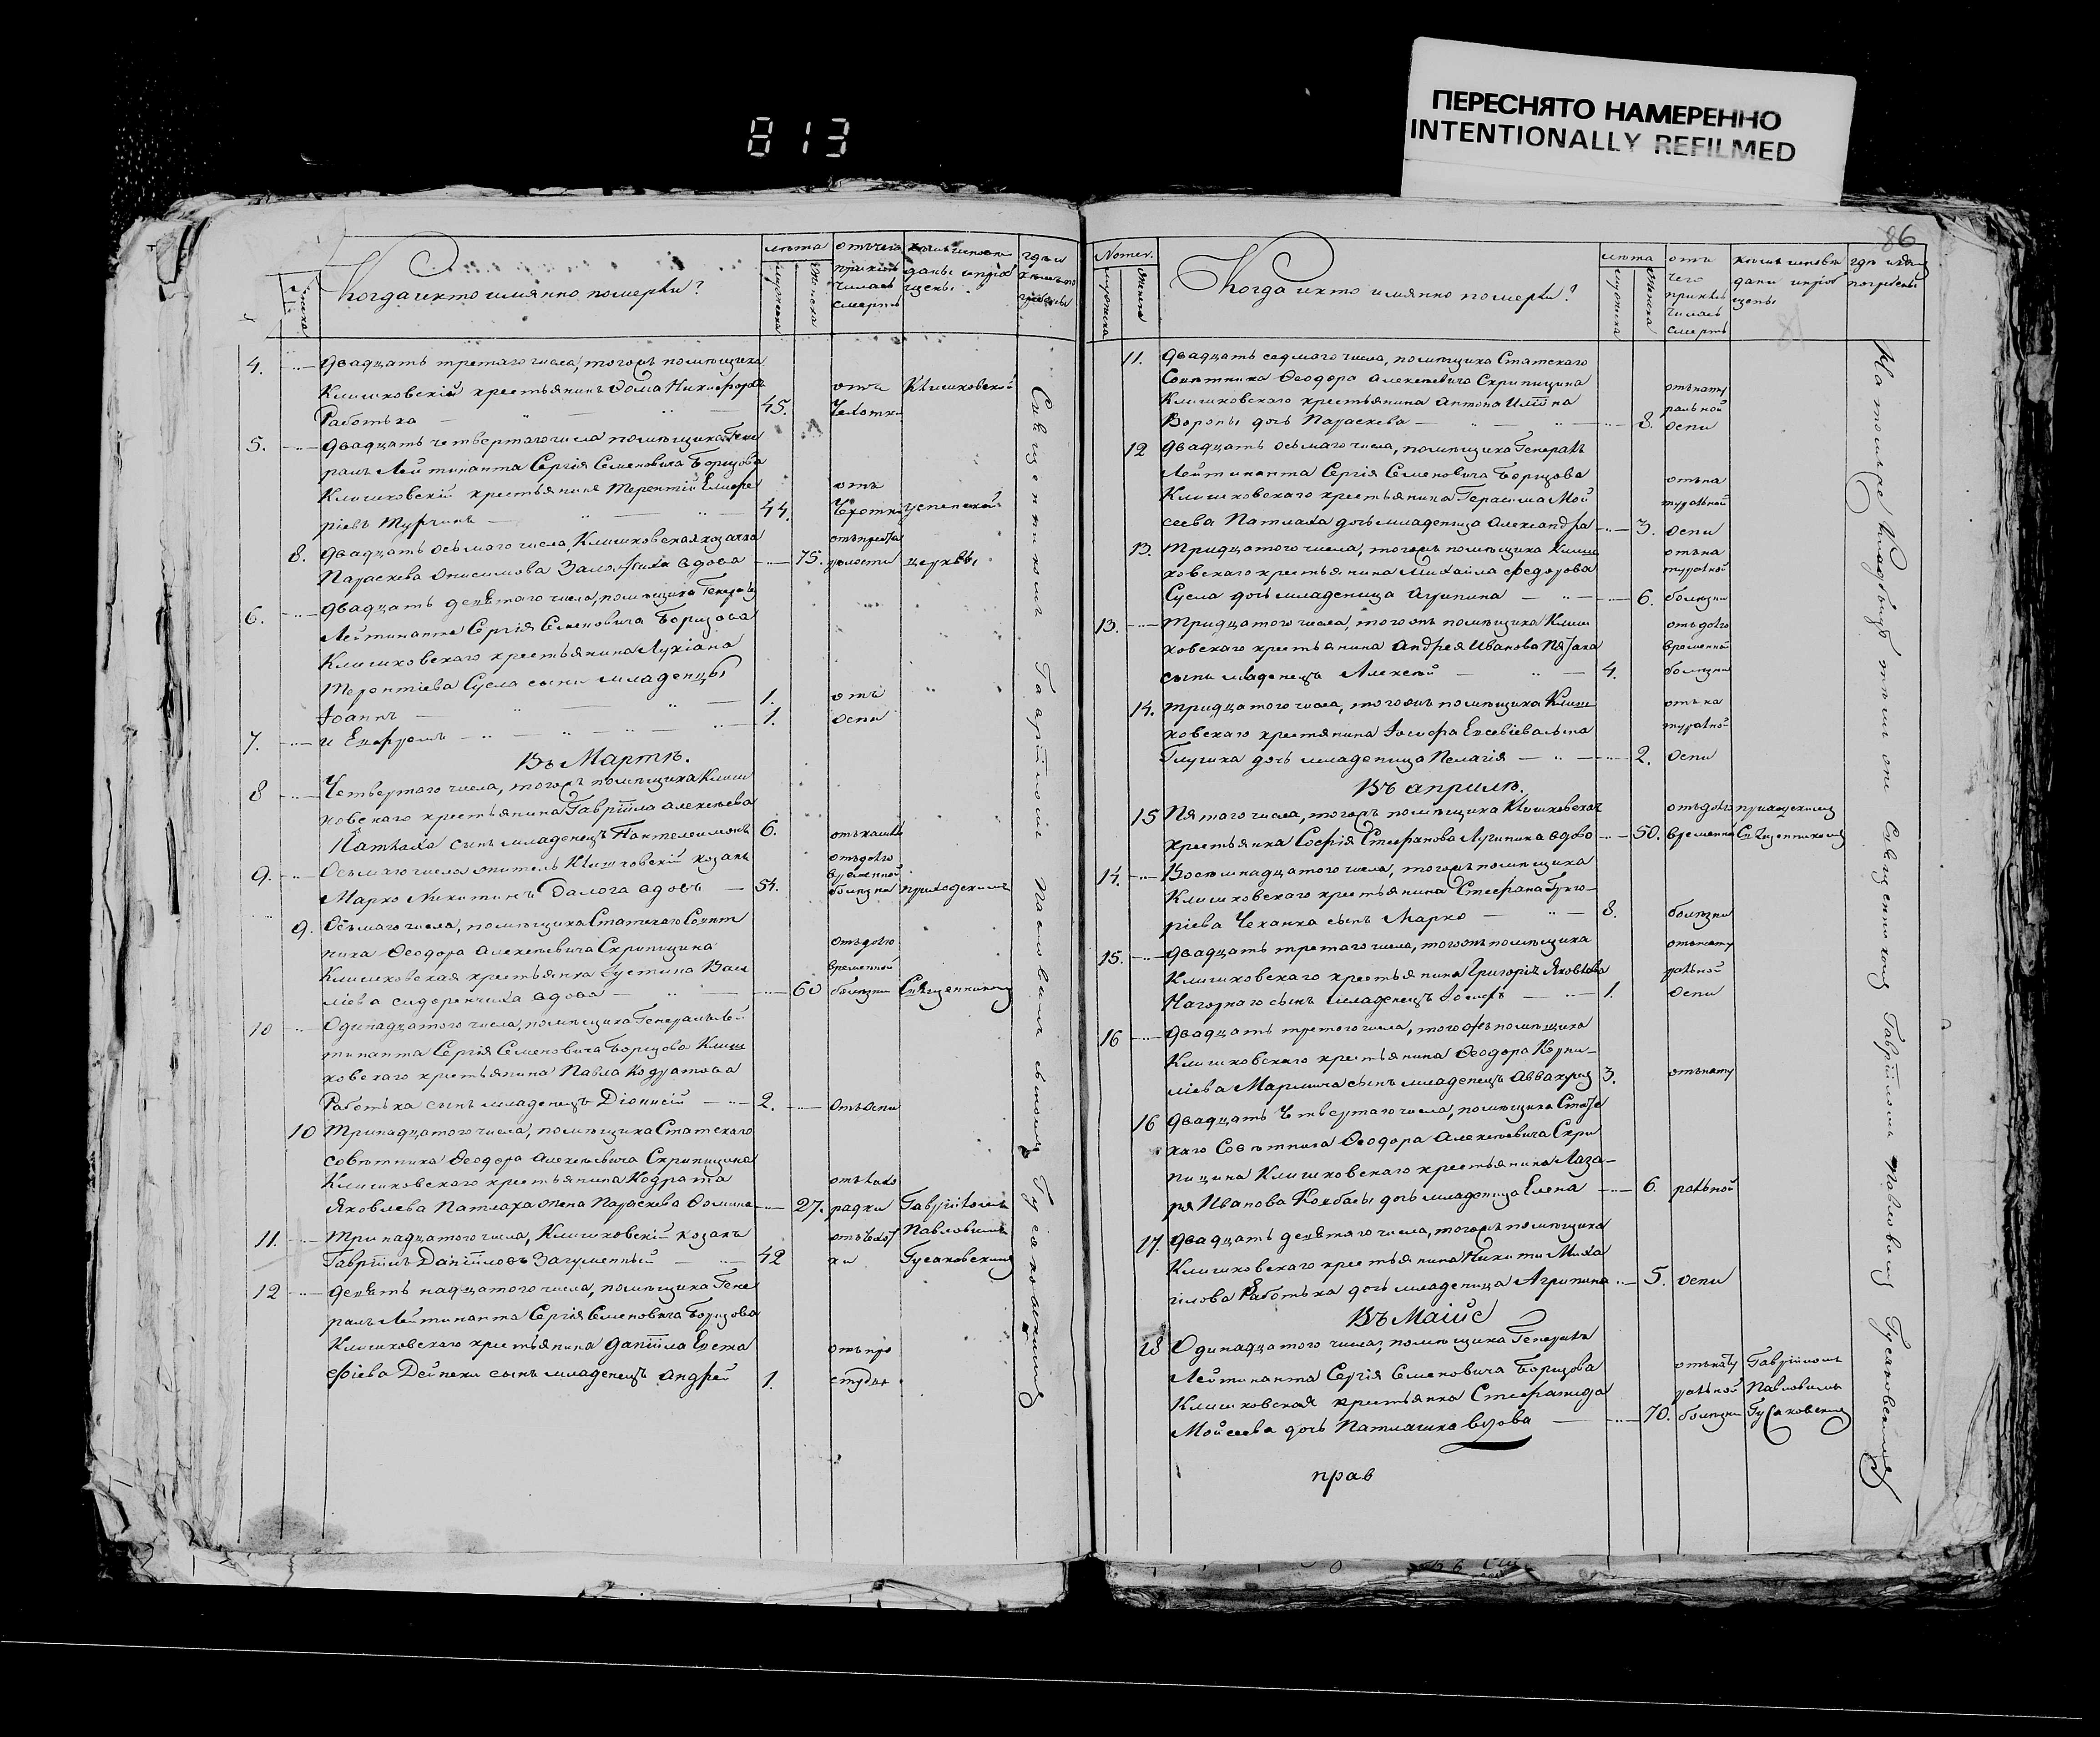 813
ПЕРЕСНЯТО НАМЕРЕННО
INTENTIONALLY REFILMED
86
Когда и кто имянно померли?
лѣта
мужеска
женска
смерть
4. Двадцать третаго числа, тогожъ помѣщика
Клишковскій крестьянинъ Ѳома Никифоровъ
Работька 45. отъ чахотки Клишковской
5. Двадцать четвертаго числа помѣщика Гене
ралъ Лейтинанта Сергія Семеновича Борщова
Клишковскій крестьянинъ Терентій
ріевъ 44. отъ чахотки успенской
8. Двадцать осьмаго числа, Клишковская козачка
Параскева Онисимова вдова 75. церквы
6. Двадцать девятаго числа, помѣщика Генералъ
Лейтинанта Сергія Семеновича Борщова
Клишковскаго крестьянина Лукіана
Терентіева Сусла сыны младенцы
Іоаннъ 1. отъ
7. и Евфремъ 1. оспи
Въ Мартѣ.
8 Четвертаго числа, тогожъ помѣщика Клиш
ковскаго крестьянина Гавріила Алексѣева
Патлаха сынъ младенецъ Пантелеимонъ 6. отъ кашля
9. Осьмаго числа житель Клишковскій козакъ
Марко Никитинъ Далога вдовъ 54. отъ долго временной болѣзни приходскимъ
9. Осьмаго числа, помѣщика Статскаго Совѣт
ника Ѳеодора Алексѣевича Скрипицина
Клишковская крестьянка Іустина Васи
лѣва Сидоренчиха вдова 60 отъ долго временной болѣзни Священникомъ
10 Одинадцатого числа, помѣщика Генералъ Лей
тинанта Сергія Семеновича Борщова Клиш
ковскаго крестьянина Павла Кодратова
Работька сынъ младенецъ Діонисій 2. отъ оспи
10 Тринадцатого числа, помѣщика Статскаго
совѣтника Ѳеодора Алексѣевича Скрипицина
Клишковскаго крестьянина Кодрата
Яковлева Патлаха жена Параскева Ѳомина 27. Гавріиломъ
11. Тринадцатого числа, Клишковскій козакъ
Гавріилъ Даніиловъ Загуменный 42 Павловимъ Гусаковскимъ
12 Девять надцатого числа, помѣщика Гене
ралъ Лейтинанта Сергія Семеновича Борщова
Клишковскаго крестьянина Даніила Евста
фіева Дейнеки сынъ младенецъ Андрей 1. отъ про студы
Священникомъ Гавріиломъ Павловимъ сыномъ Гусаковскимъ
Nomer.
мужеска
женска
Когда и кто имянно померли?
лѣта
мужеска
женска
отъ
чего
приклю
чилась
смерть
11. Двадцать седмого числа, помѣщика Статскаго
Совѣтника Ѳеодора Алексѣевича Скрипицина
Клишковскаго крестьянина Антона Иліина
Вороны дочь Параскева 8. отъ нату ральной оспи
12 Двадцать осьмаго числа, помѣщика Генералъ
Лейтинанта Сергія Семеновича Борщова
Клишковскаго крестьянина Герасима Мой
сеева Патлаха дочь младеница Александра 3. отъ на туральной оспи
13. Тридцатого числа, тогожъ помѣщика Клиш
ковскаго крестьянина Михайла Федорова
Сусла дочь младеница Агрипина 6. отъ на туралной болѣзни
13. Тридцатого числа, тогожъ помѣщика Клиш
ковскаго крестьянина Андрея Иванова
сынъ младенецъ Алексѣй 4. отъ долго временной болѣзни
14. Тридцатого числа, тогожъ помѣщика Клиш
ковскаго крестянина Іосифа Евсевіева сына
Глушка дочь младеница Пелагія 2. отъ на туралной оспи
Въ априлѣ.
15 Пятаго числа, тогожъ помѣщика Клишковская
крестьянка Софія Стефанова вдова 50. отъ долго временной приходскимъ Священникомъ
14. Восемнадцатого числа, тогожъ помѣщика
Клишковскаго крестьянина Стефана Григо
ріева Чеханка сынъ Марко 8. болѣзни
15. Двадцать третаго числа, тогожъ помѣщика
Клишковскаго крестьянина Григорія Яковлева
Нагорнаго сынъ младенецъ Іосифъ 1. отъ нату ральной оспи
16 Двадцать третаго числа, того жъ помѣщика
Клишковскаго крестьянина Ѳеодора Корни
ліева сынъ младенецъ Аввакумъ 3. отъ нату
16 Двадцать четвертаго числа, помѣщика Статс
каго Совѣтника Ѳеодора Алексѣевича Скри
пицина Клишковскаго крестьянина Лаза
ря Иванова Колбасы дочь младеница Елена 6. ральной
17. Двадцать девятаго числа, тогожъ помѣщика
Клишковскаго крестьянина Никити Миха
илова Работька дочь младеница Агрипина 5. оспи
Въ Маіи
18 Одинадцатого числа, помѣщика Генералъ
Лейтинанта Сергія Семеновича Борщова
Клишковская крестьянка Стефанида
Мойсеева дочь Патлачиха вдова 70. отъ нату ральной болѣзни Гавріиломъ Павловимъ Гусаковскимъ
прав
На томъ же кладбищѣ тѣмъ же Священникомъ Гавріиломъ Павловимъ Гусаковскимъ